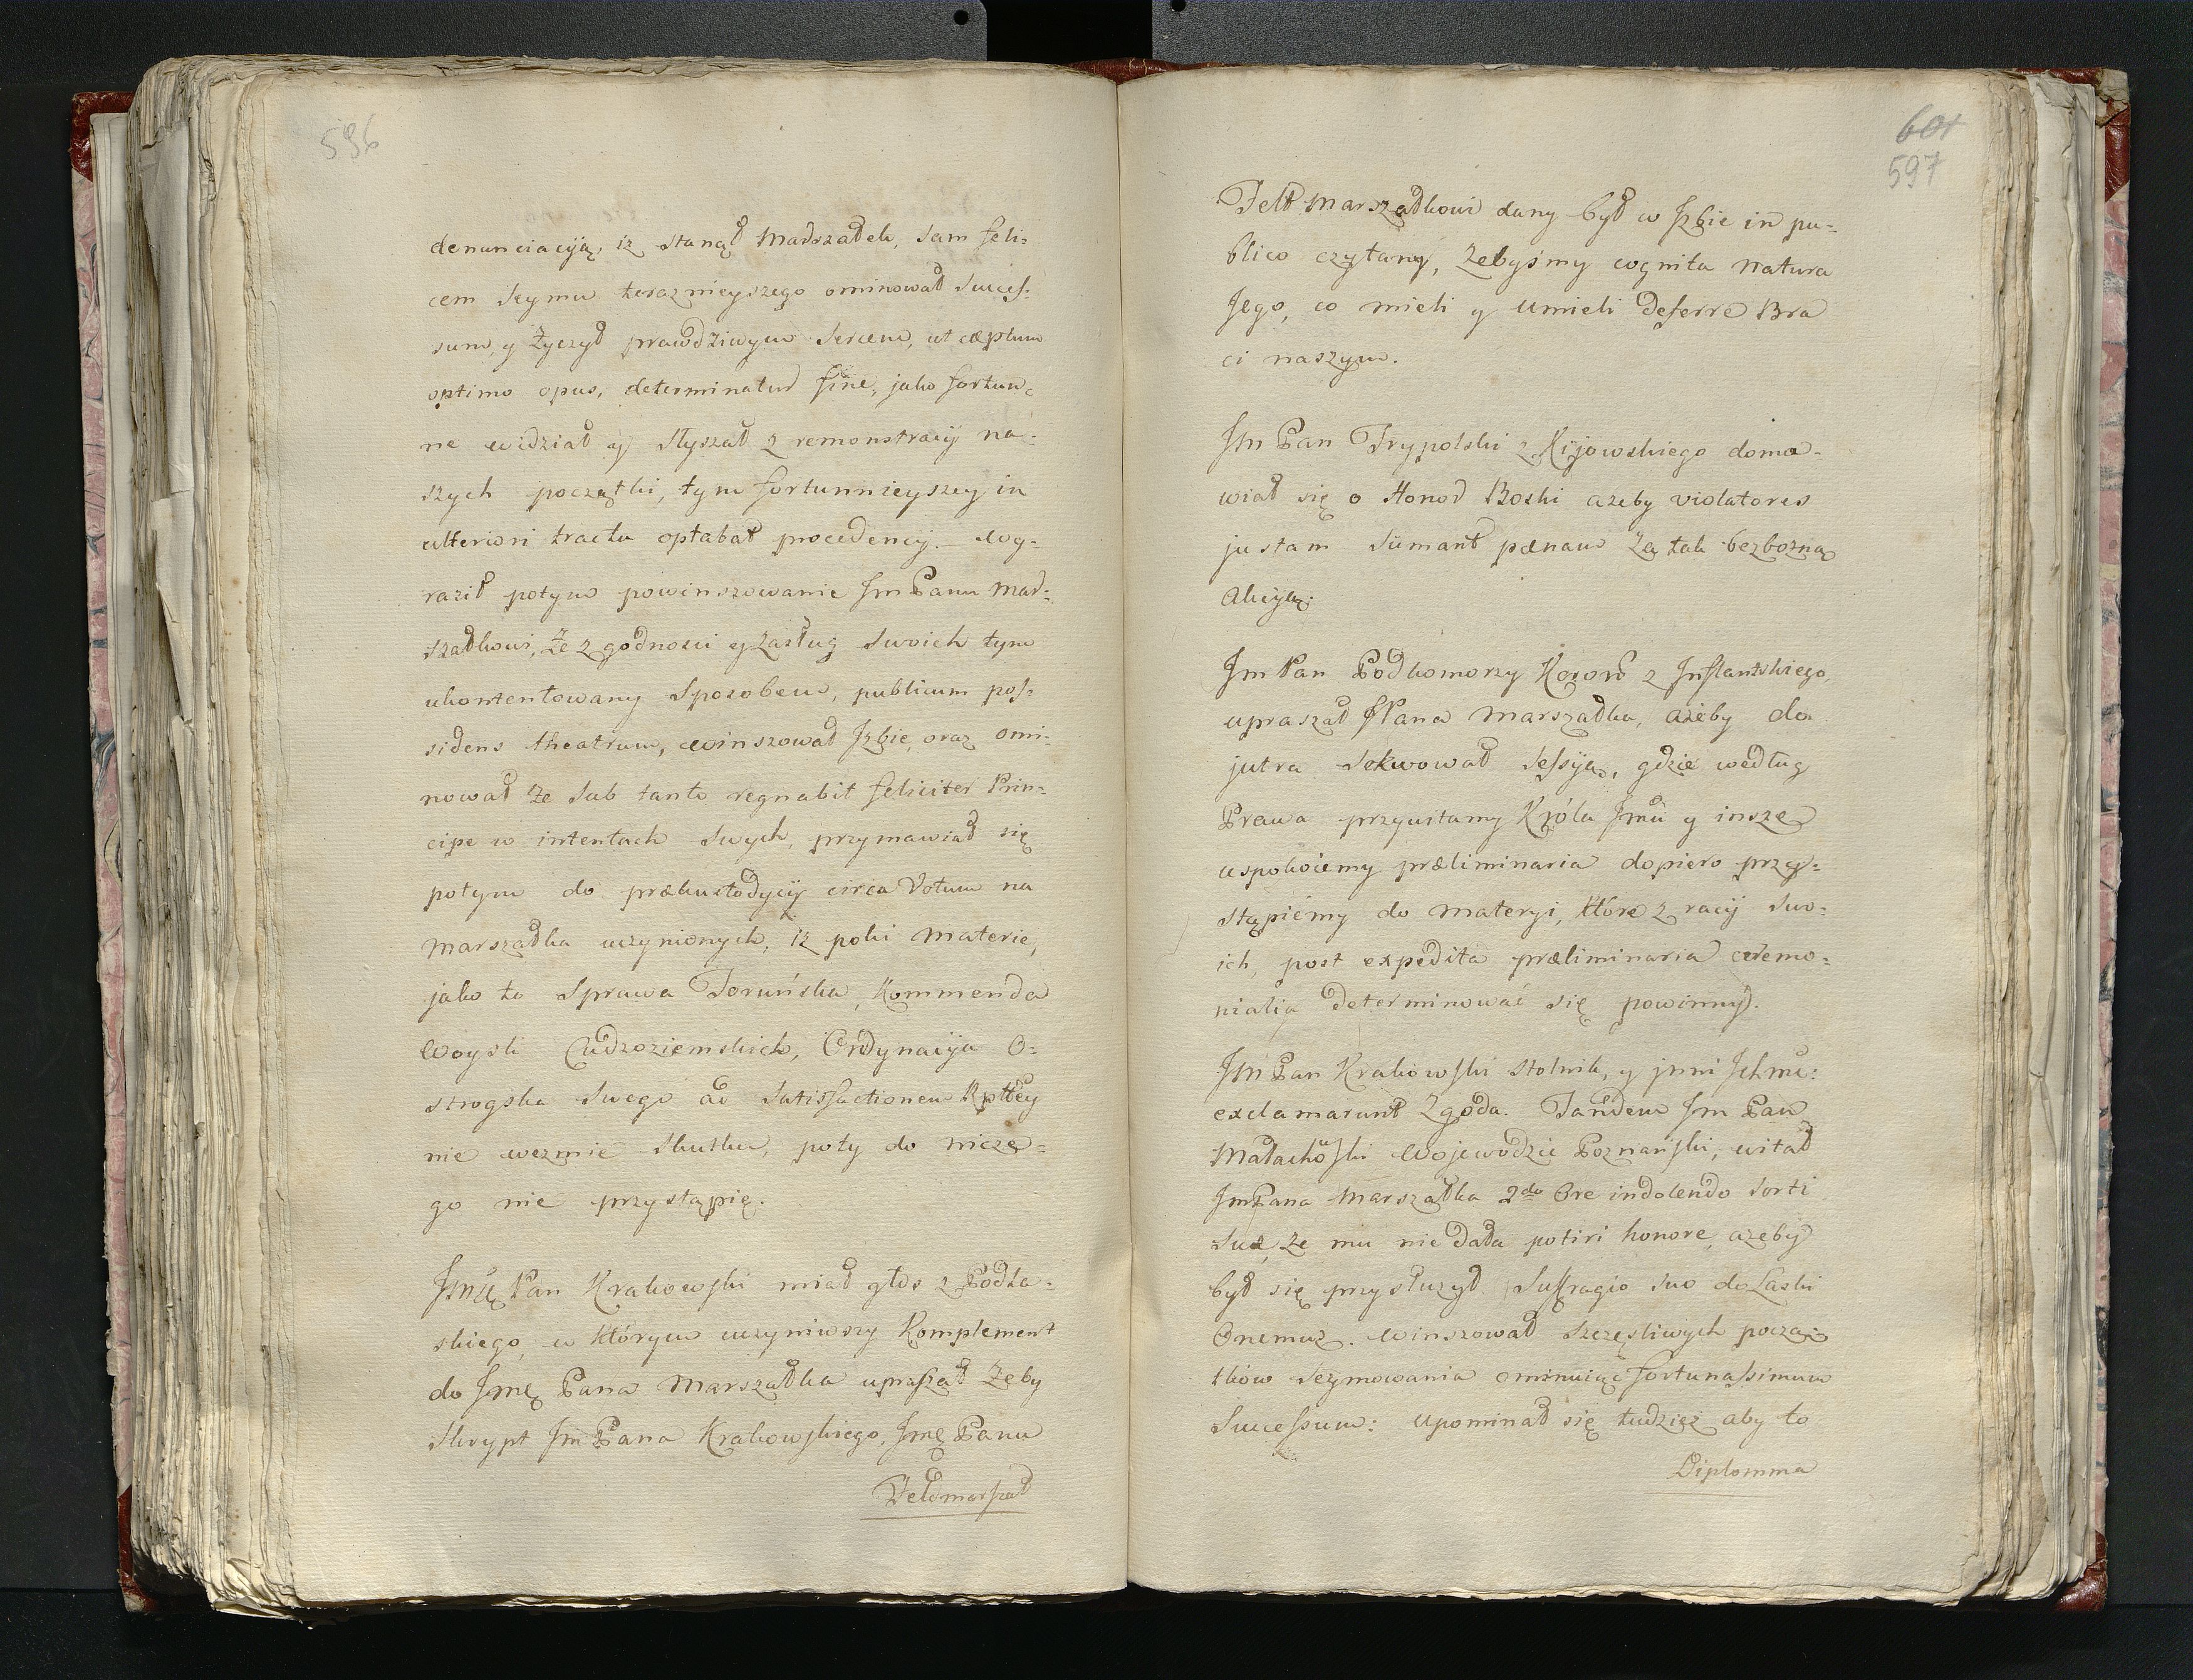 596
denunciacyją, iz stanął Marszałek, sam feli=
cem Seymu teraznieyszego ominował succes=
sum, y życzył prawdziwym sercem, ut cæptum
optimo opus, determinatur fine, jako fortun=
ne widział y słyszał z remonstracyi na=
szych początki, tym fortunnieyszey in
ulteriori tractu optabat procedencyi. Wy=
raził potym powinszowanie Jm Panu Mar=
szałkowi, że z godności y zasług swoich tym
ukontentowany sposobem, publicum pos=
sidens theatrum, winszował Jzbie, oraz omi=
nował że sub tanto regnabit feliciter Prin=
cipe w intentach swych, przymawiał się
potym do prækustodycyi circa Votum na
Marszałka uczynionych, iz poki materie,
jako to Sprawa Toruńska, Kommenda
Woysk Cudzoziemskich, Ordynacyja O=
strogska swego ad satisfactionem Rpttey
nie wezmie skutku, poty do nicze=
go nie przystąpię.
Jmę Pan Krakowski miał głos z Podla=
skiego, w którym uczyniwszy Komplement
do Jmę Pana Marszałka upraszał żeby
Skrypt Jm Pana Krakowskiego, Jmę Panu
Feldmarszał
601
597
Felt Marszałkowi dany był w Jzbie in pu=
blico czytany, żebyśmy cognita natura
Jego, co mieli y umieli deferre Bra
ci naszym.
Jm Pan Trypolski z Kijowskiego doma=
wiał się o Honor Boski azeby violatores
justam sumant pænam za tak bezbożną
Akcyją.
Jm Pan Podkomorzy Kororf z Jnflantskiego,
upraszał JPana Marszałka, ażeby do
jutra solwował Sessyją, gdzie według
Prawa przywitamy Króla Jmu y insze
uspokoiemy præliminaria dopiero przy=
stąpiemy do materyi, które z racyi swo=
ich, post expedita præliminaria ceremo=
nialia determinować się powinny.
Jm Pan Krakowski Stolnik, y jnni Jchmu:
exclamarunt Zgoda. Tandem Jm Pan
Małachoski Wojewodzic Poznański, witał
Jm Pana Marszałka 2do Ore indolendo sorti
suæ, że mu nie dała potiri honore, azeby
był się przysłużył Suffragio suo do Laski
Onemuz. winszował szczęsliwych począ=
tków Seymowania ominuiąc fortunassimum
Successum: upominał się tudzież aby to
Diplomma